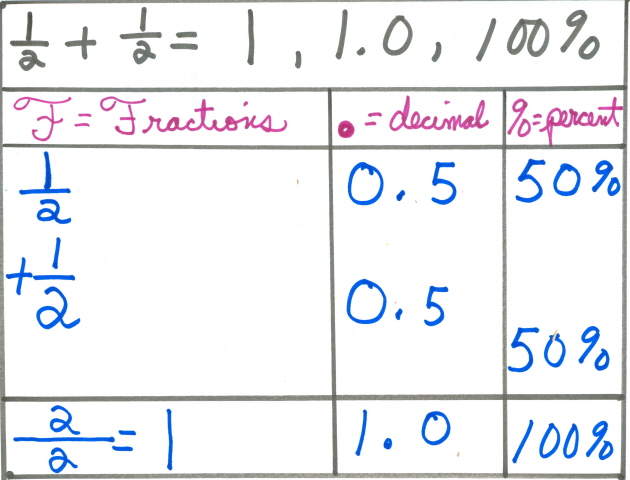 1/2 + 1/2 = 1, 1.0, 100%
F = Fractions . = decimal %=percent
1/2 0.5 50%
+ 1/2 0.5
50%
2/2 = 1 1.0 100%